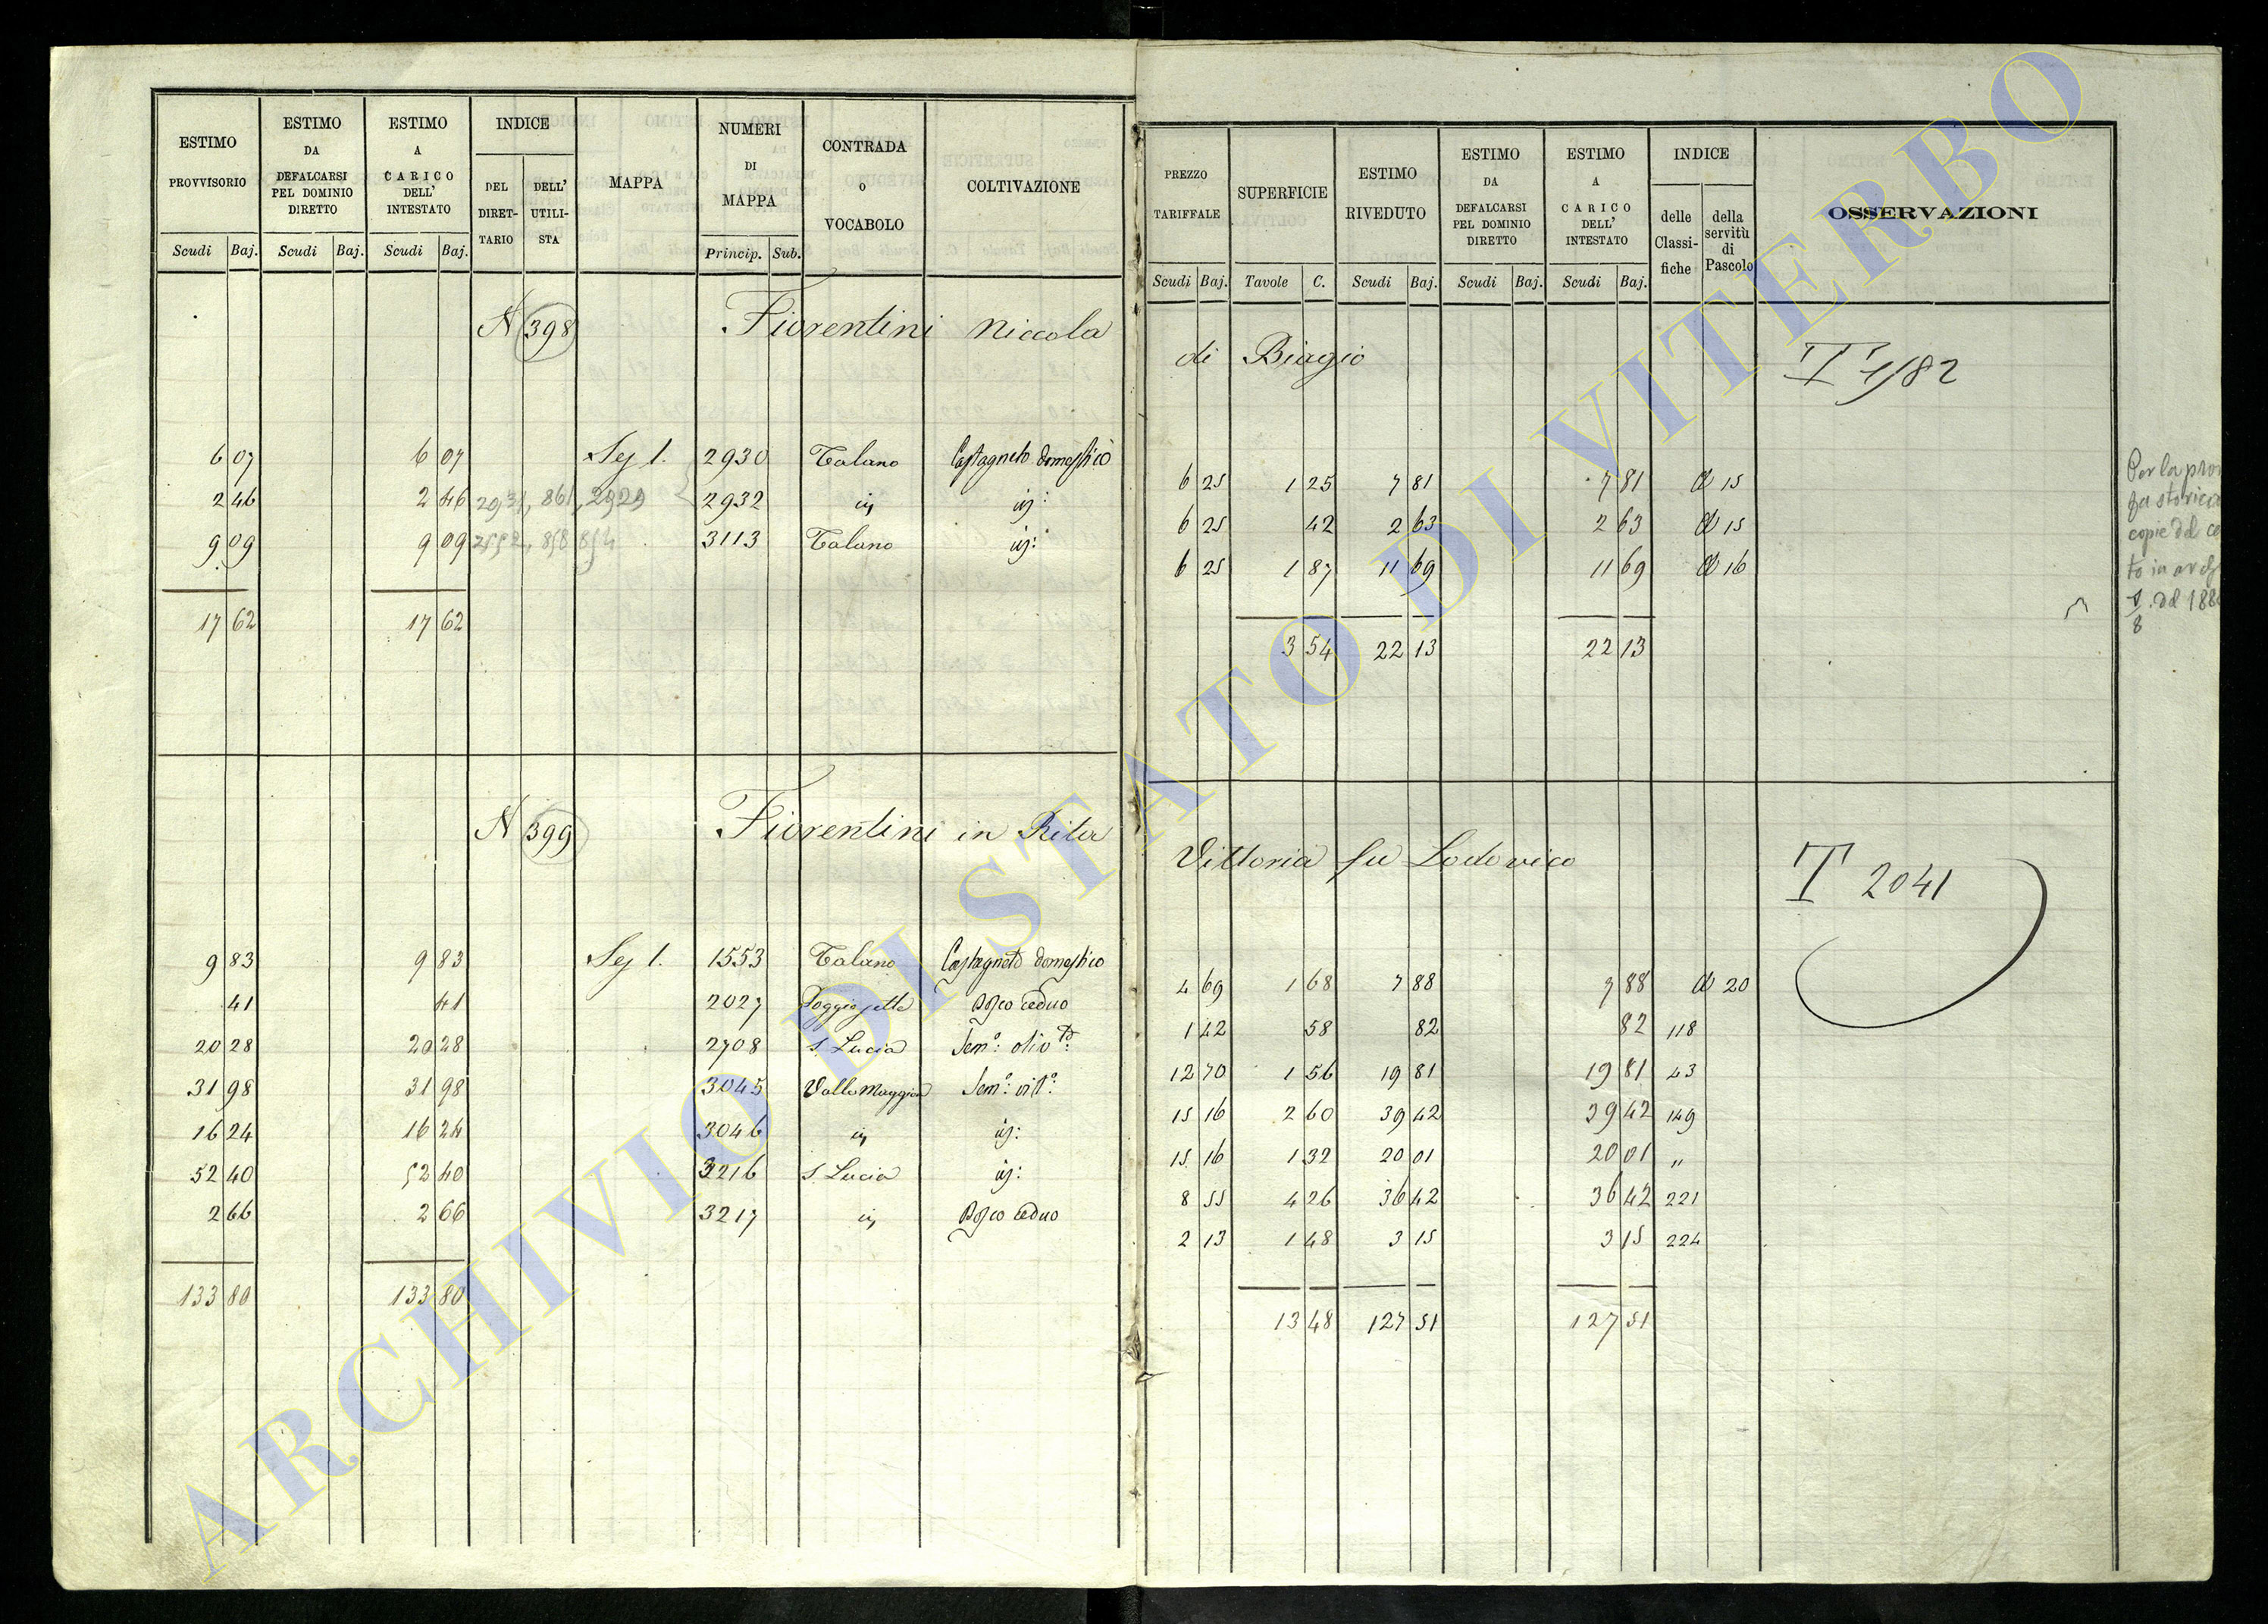 ESTIMO PROVVISORIO Scudi Baj.
ESTIMO DA DEFALCARSI PEL DOMINIO DIRETTO Scudi Baj.
ESTIMO A CARICO DELL' INTESTATO Scudi Baj.
INDICE DEL DIRET-TARIO DELL' UTILI-STA
MAPPA
NUMERI DI MAPPA Princip. Sub.
CONTRADA o VOCABOLO
COLTIVAZIONE
N 398 Fiorentini Niccola
6 07 6 07 Sez 1. 2930 Talano Castagneto domestico
2 46 2 46 2931, 861, 2929 2932 id
9 09 9 09 858 854 3113 Talano id:
17 62 17 62
N 399 Fiorentini in Rita
9 83 9 83 Sez 1. 1553 Talano Castagneto domestico
41 41 2027 Bosco ceduo
20 28 20 28 2708 S. Lucia Sem.o: oliv.to:
31 98 31 98 3045 Valle Maggiore Sem.o: vit.o:
16 24 16 24 3046 id id:
52 40 52 40 3216 S. Lucia id:
2 66 2 66 3217 id Bosco ceduo
133 80 133 80
PREZZO TARIFFALE Scudi Baj.
SUPERFICIE Tavole C.
ESTIMO RIVEDUTO Scudi Baj.
ESTIMO DA DEFALCARSI PEL DOMINIO DIRETTO Scudi Baj.
ESTIMO A CARICO DELL' INTESTATO Scudi Baj.
INDICE delle Classi-fiche della servitù di Pascolo
OSSERVAZIONI
di Biagio T 1/82
6 25 1 25 7 81 7 81 15
6 25 42 2 63 2 63 15
6 25 1 87 11 69 11 69 16
3 54 22 13 22 13
Per la
copie del
to in
del 188
8
Vittoria fu Lodovico T 2041
4 69 1 68 7 88 7 88 20
1 42 58 82 82 118
12 70 1 56 19 81 19 81 43
15 16 2 60 39 42 39 42 149
15 16 1 32 20 01 20 01 "
8 55 4 26 36 42 36 42 221
2 13 1 48 3 15 3 15 224
13 48 127 51 127 51
ARCHIVIO DI STATO DI VITERBO